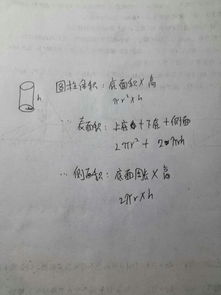 圆柱体积：底面积×高
h
πr²×h
∵表面积：上底+下底+侧面
2πr²+2πrh
∴侧面积：底面周长×高
2πr×h